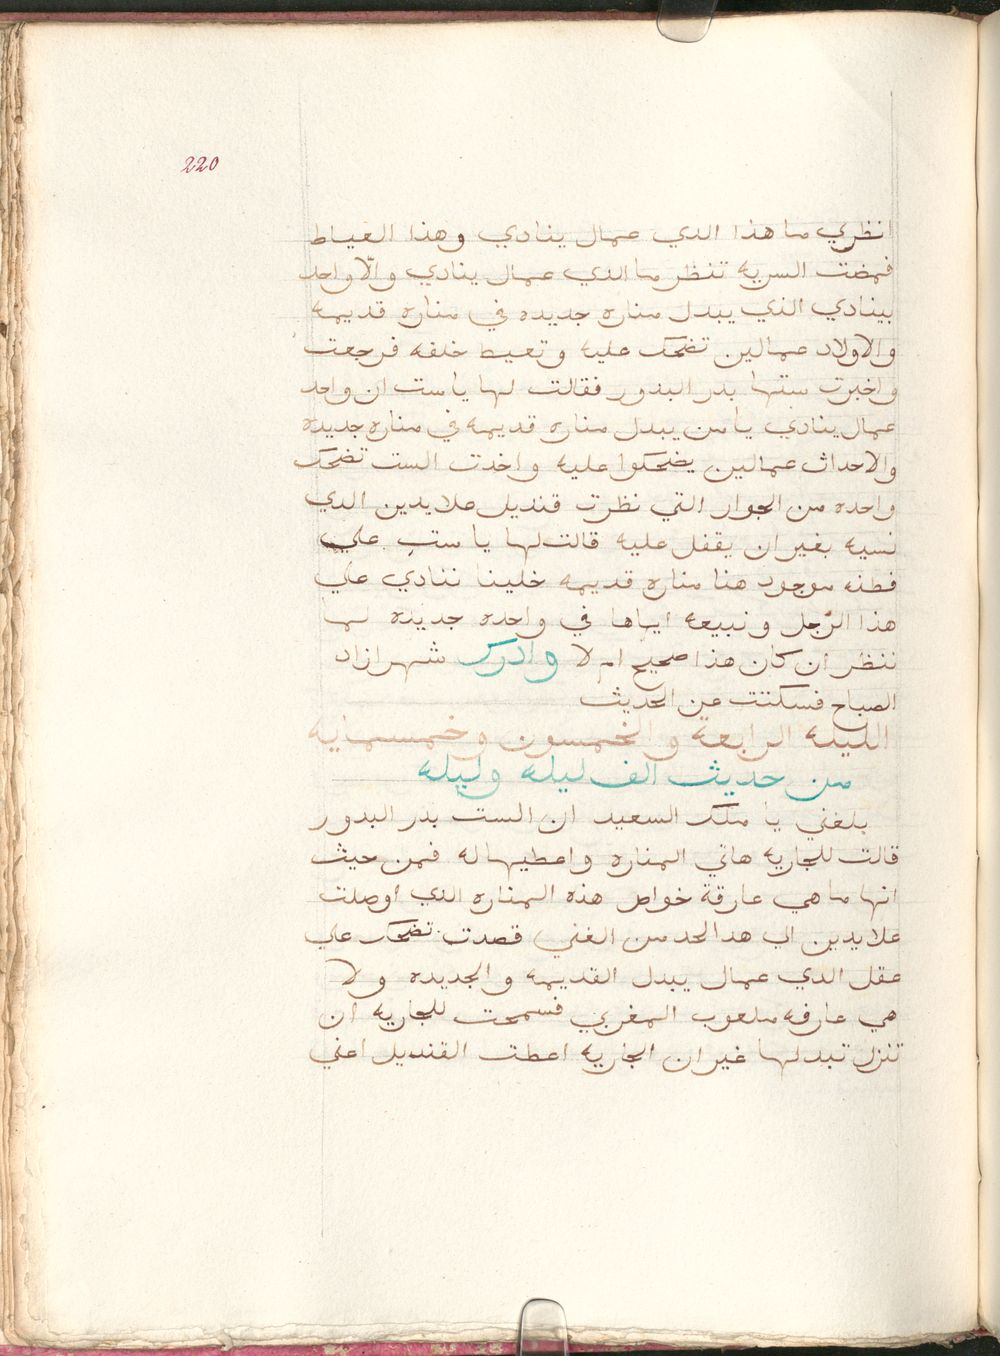 220
انظري ما هذا الدي عمال ينادي وهذا العياط
فمضت السريه تنظر ما الذي عمال ينادي والّا واحد
بينادي الذي يبدل مناره جديده في مناره قديمه
والاولاد عمالين تضحك عليه وتعيط خلفه فرجعت
واخبرت ستها بدر البدور فقالت لها يا ست ان واحد
عمال ينادي يا من يبدل مناره قديمه في مناره جديده
والاحداث عمالين يضحكوا عليه واخدت الست تضحك
واحده من الجوار التي نظرت قنديل علايدين الدي
نسيه بغير ان يقفل عليه قالت لها يا ستي علي
فطنه موجود هنا مناره قديمه خلينا ننادي علي
هذا الرّجل ونبيعه اياها في واحده جديده لها
ننظر ان كان هذا صحيح ام لا وادرك شهرازاد
الصباح فسكتت عن الحديث
الليله الرابعة والخمسون وخمسمايه
من حديث الف ليله وليله
بلغني يا ملك السعيد ان الست بدر البدور
قالت للجاريه هاتي المناره واعطيها له فمن حيث
انها ما هي عارفة خواص هذه المناره الذي اوصلت
علايدين الي هدا الحد من الغني قصدت تضحك علي
عقل الدي عمال يبدل القديمه والجديده ولا
هي عارفه ملعوب المغربي فسمحت للجاريه ان
تنزل تبدلها غير ان الجاريه اعطت القنديل اعني